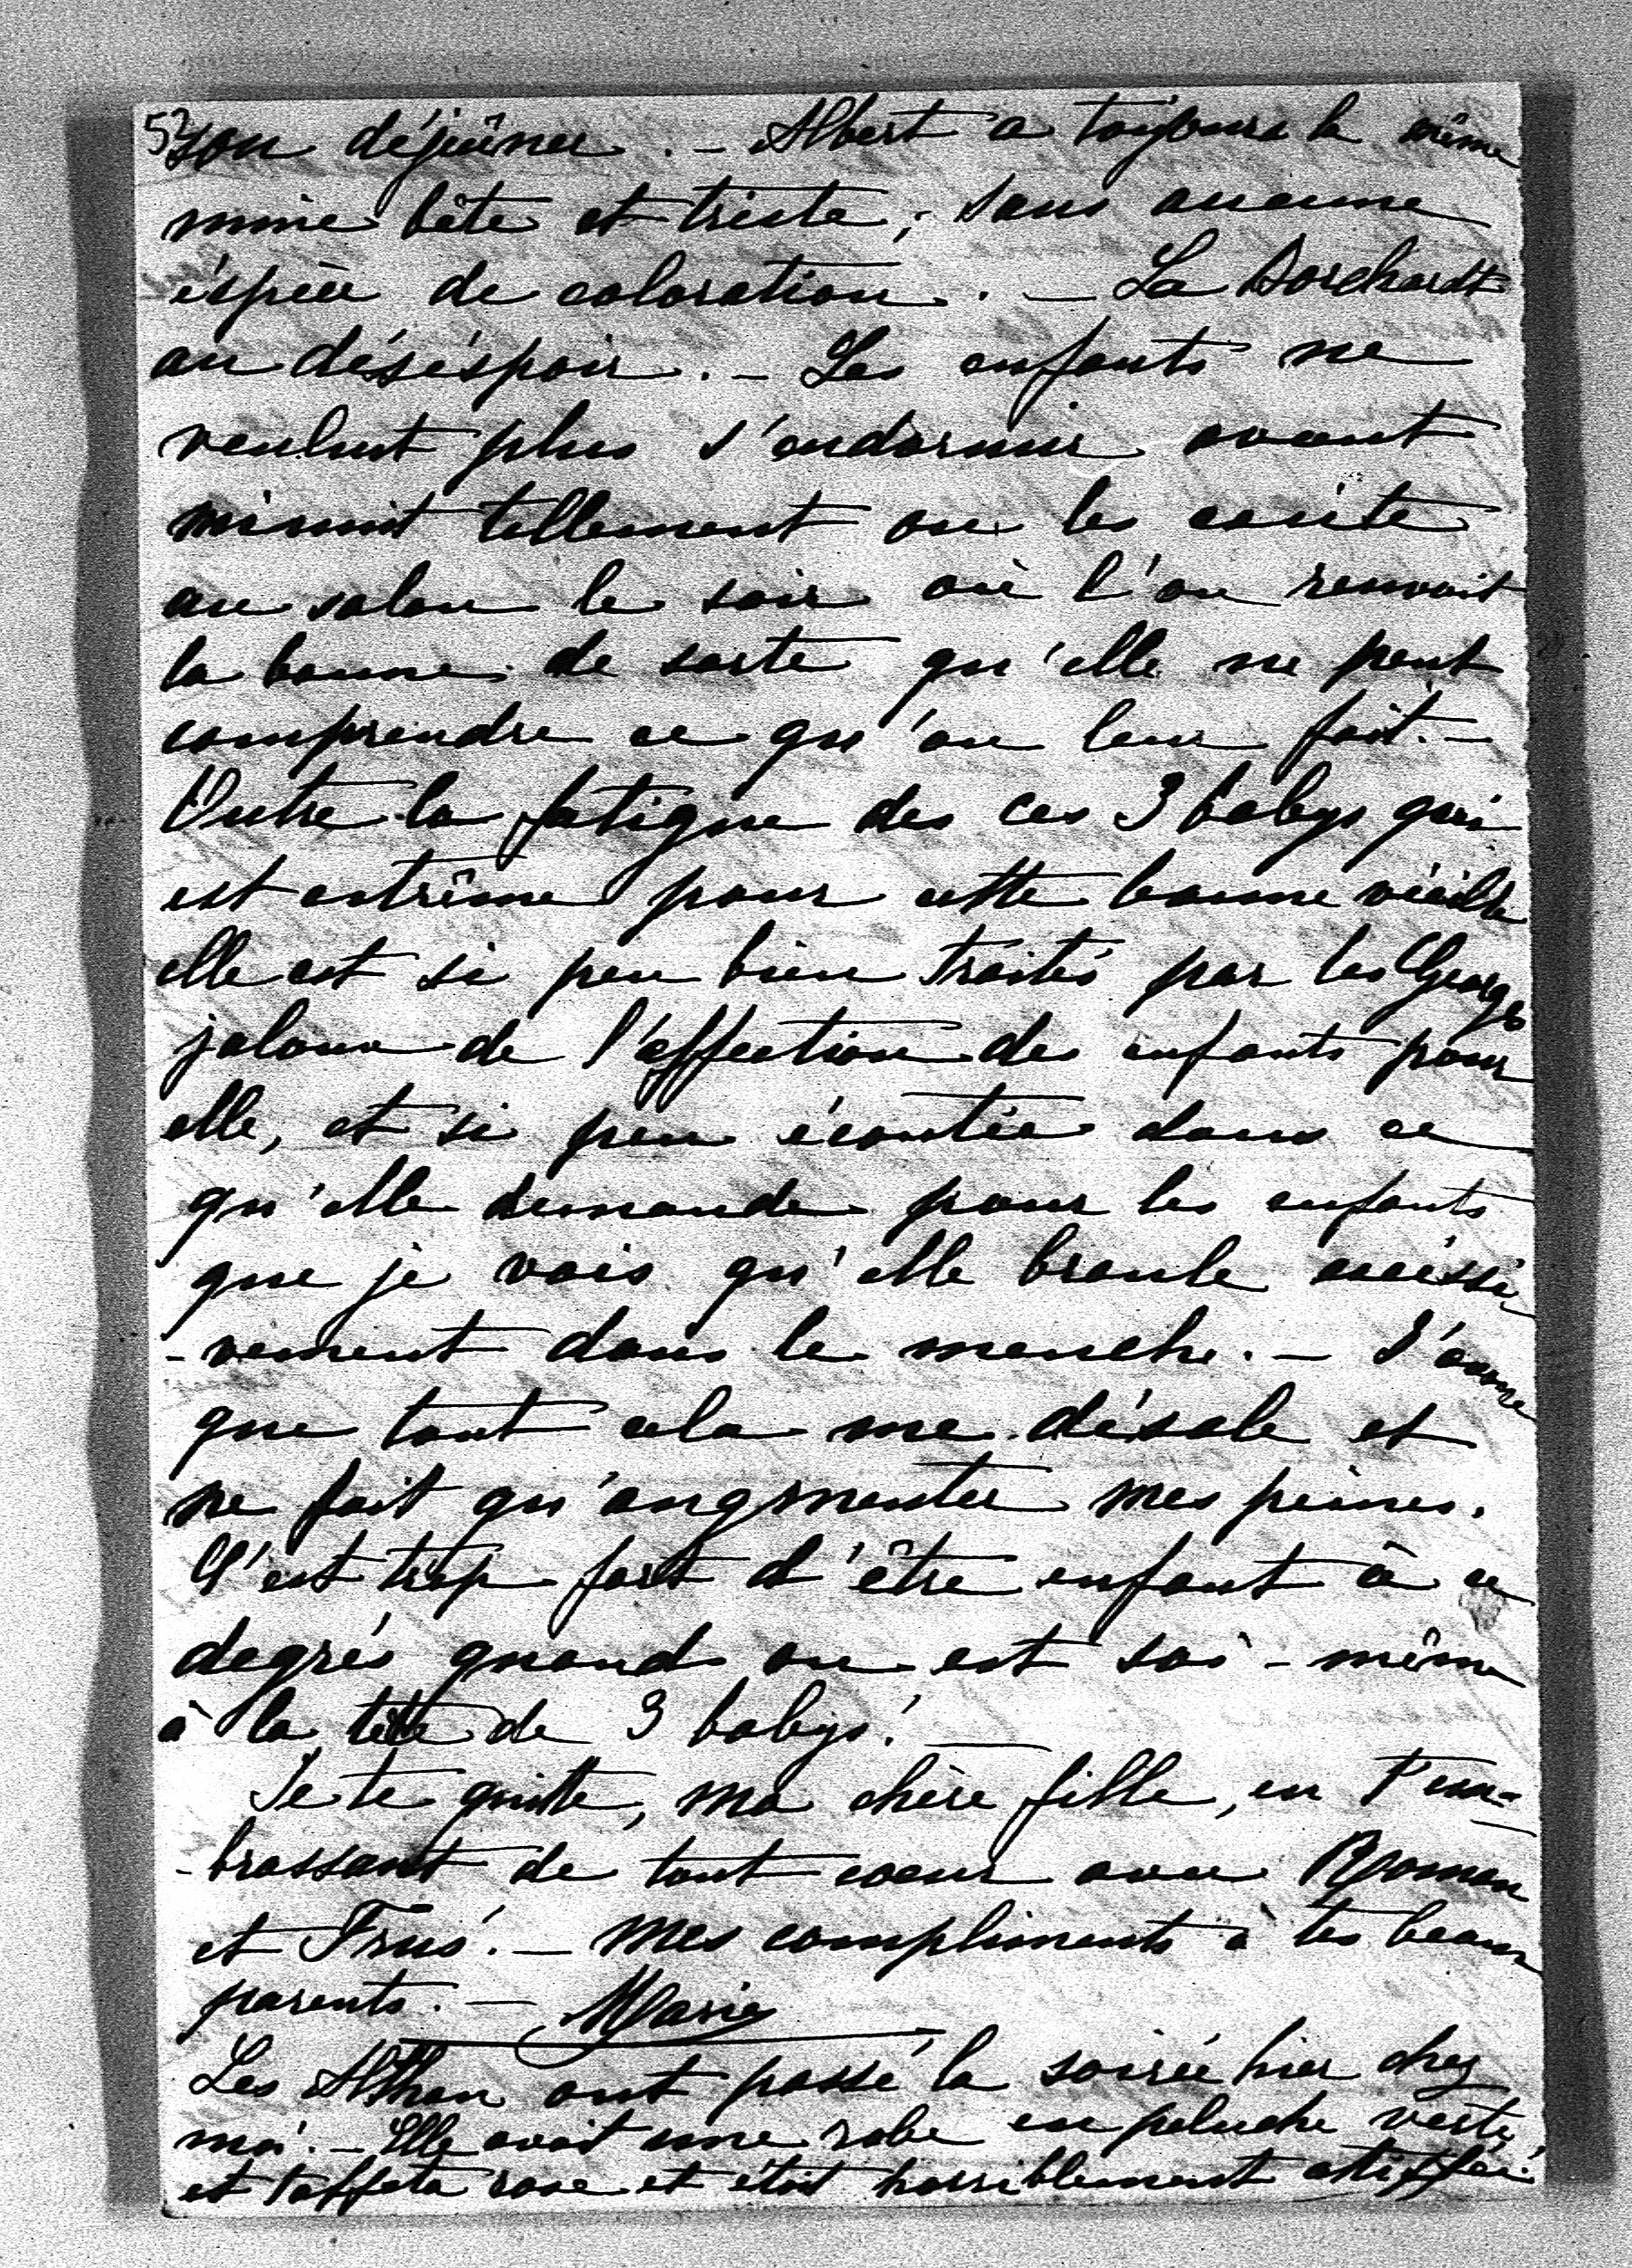 52
son déjeûner. — Albert a toujours la même
mine bête et triste, sans aucune
éspèce de coloration. — La Borchardt
au déséspoir. — Les enfants ne
veulent plus s'endormir avant
minuit tellement on les excite
au salon le soir où l'on renvoit
la bonne de sorte qu'elle ne peut
comprendre ce qu'on leur fait. —
Outre la fatigue des ces 3 babys qui
est extrême pour cette bonne vieille
elle est si peu bien traitée par les George
jaloux de l'affection des enfants pour
elle, et si peu écoutée dans ce
qu'elle demande pour les enfants
que je vois qu'elle branle excéssi
-vement dans le manche. — J'avoue
que tout cela me désole et
ne fait qu'augmenter mes peines.
C'est trop fort d'être enfant à ce
degrés quand on est soi-même
à la tête de 3 babys! —
Je te quitte, ma chère fille, en t'em-
-brassant de tout coeur avec Roman
et . — Mes compliments à tes beaux
parents. — Marie
Les ont passé la soirée hier chez
moi. — Elle avait une robe en peluche verte
et taffeta rose et était horriblement attiffée.